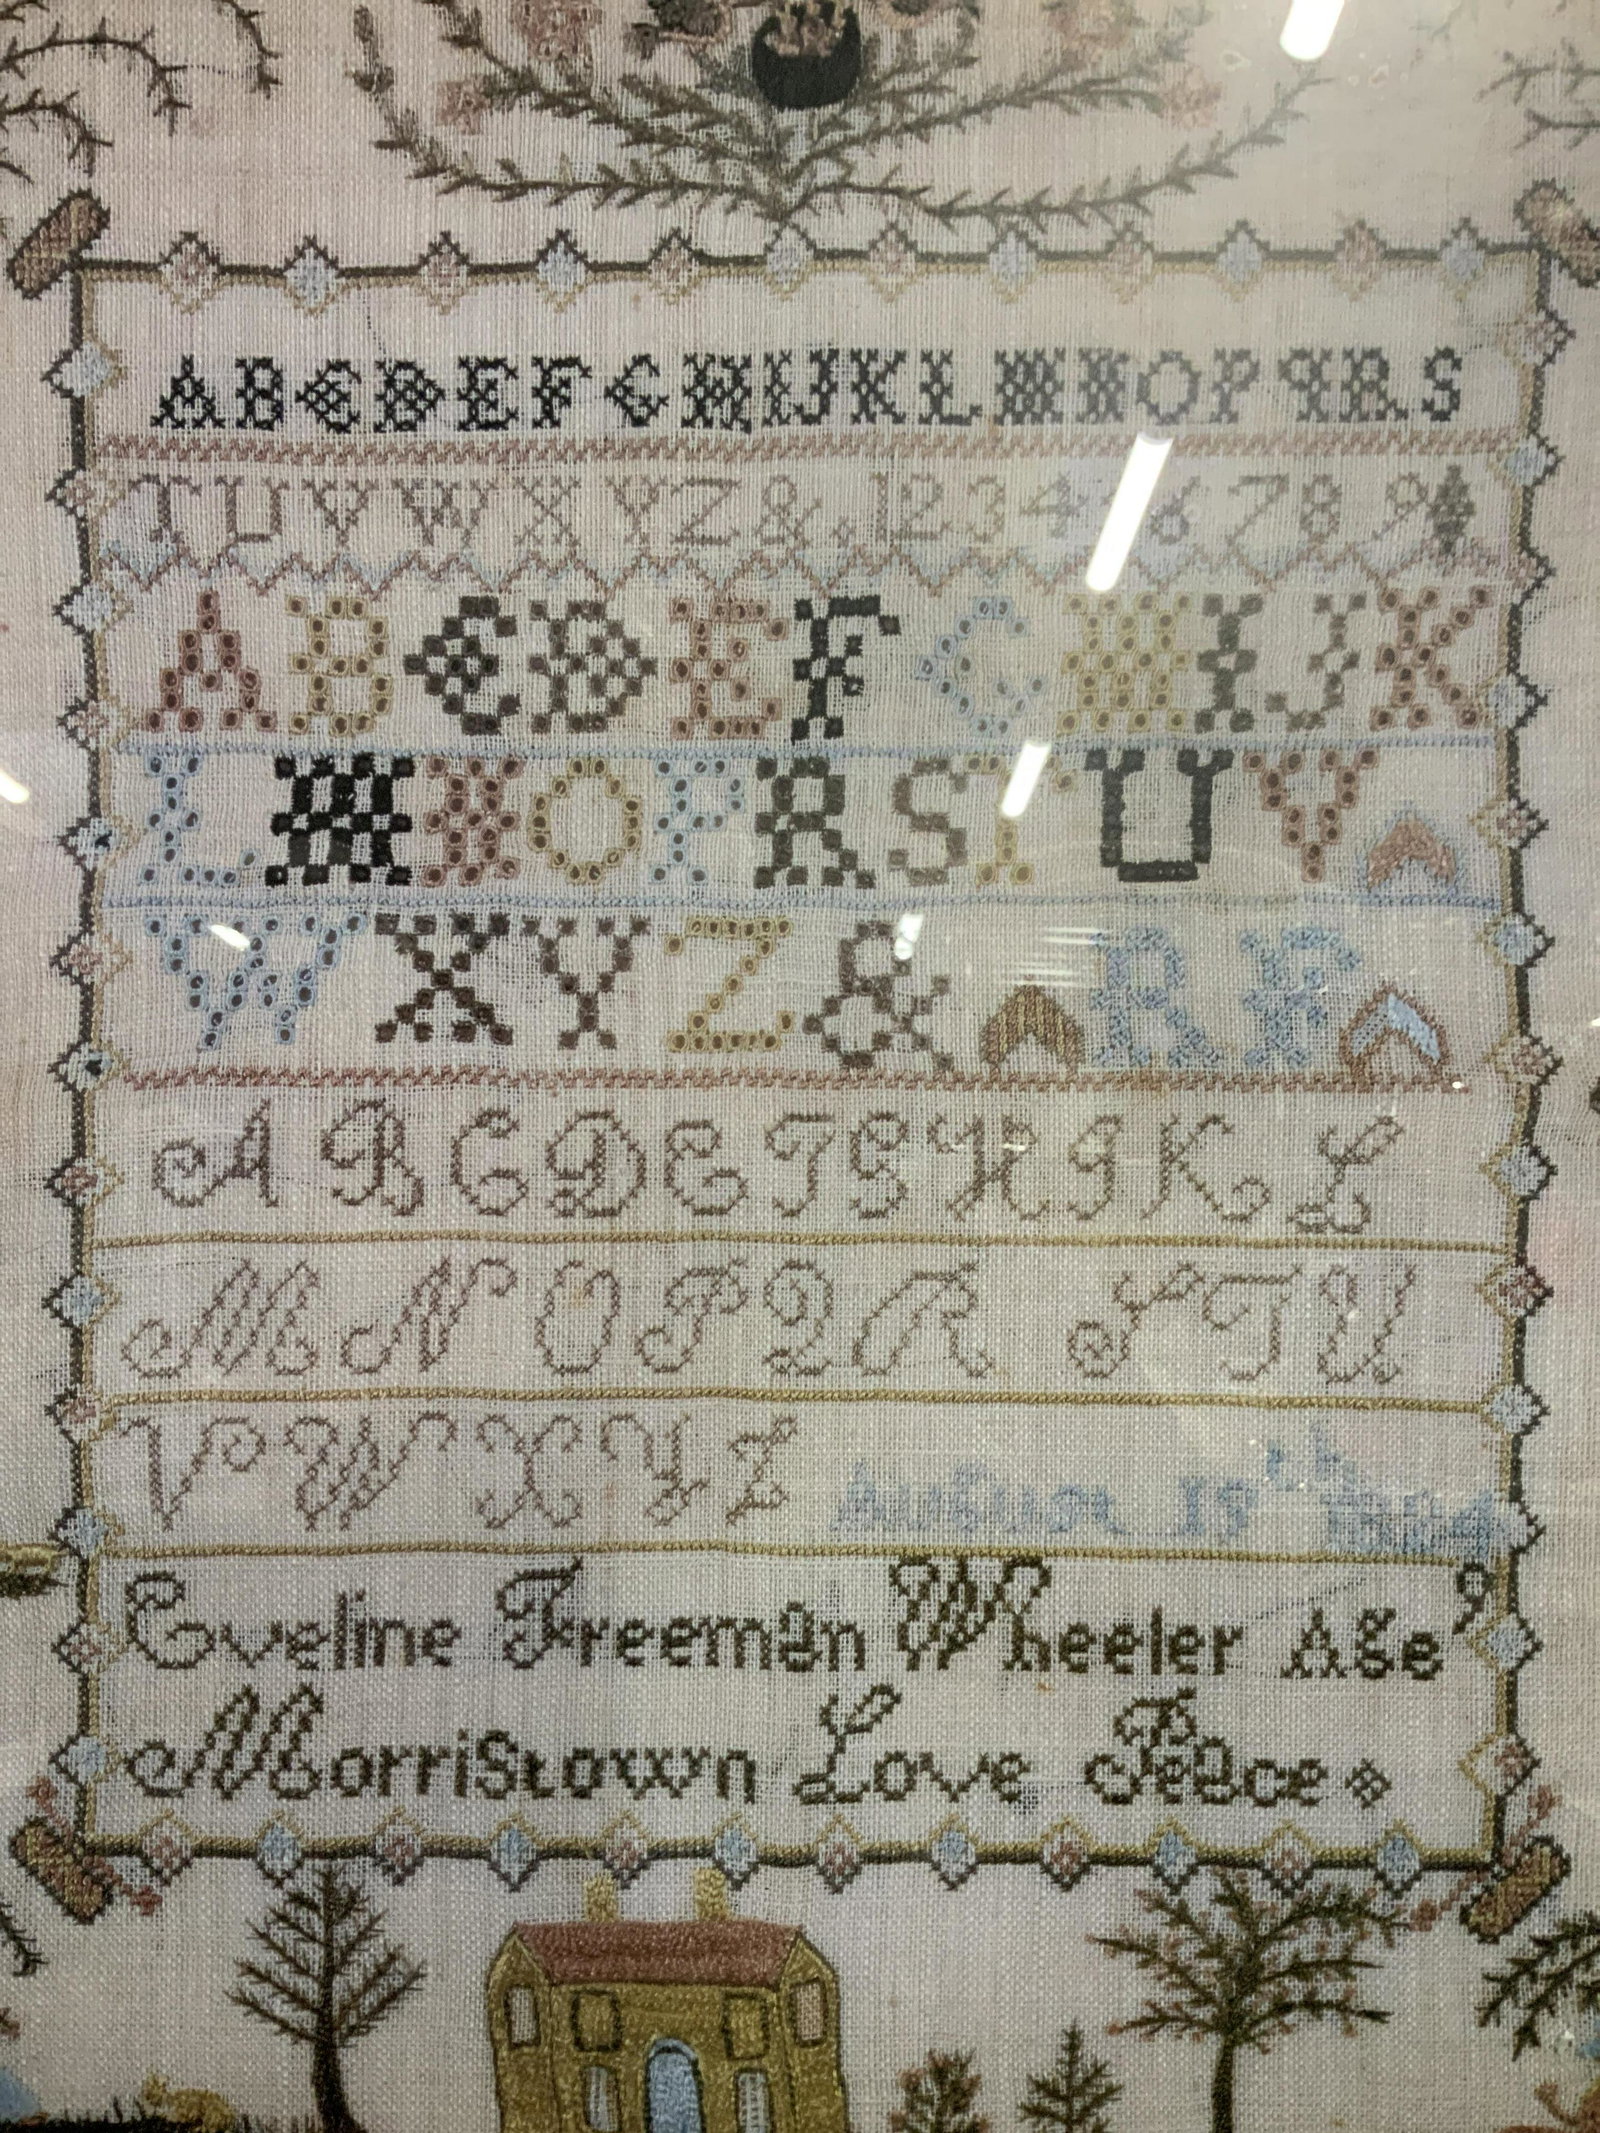 A B C D E F G H I J K L M N O P Q R S
T U V W X Y Z &. 1 2 3 4 6 7 8 9
A B C D E F G H I J K
L M N O P R S T U V
W X Y Z & R F
A B C D E F G H I K L
M N O P Q R S T U
V W X Y Z August 17th
Eveline Freeman Wheeler Age 9
Morristown Love Peace